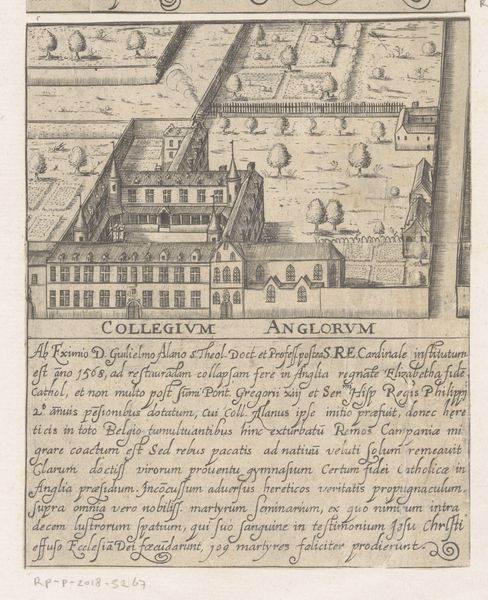 COLLEGIVM ANGLORVM
Ab Eximio D. Guilielmo Alano S. Theol. Doct et Profess. postea S. R. E. Cardinale institutum
est año 1568, ad restaurādam collapsam fere in Anglia regnāte Elizabetha fidē
Cathol, et non multo post sūmi Pont Gregorii xiij et Ser.mi Hisp Regis Philippi
2.di añuis pēsionibus dotatum, cui Coll. Alanus ipse initio præfuit, donec here
ticis in toto Belgio tumultuantibus hinc exturbatū Remos Campaniæ mi
grare coactum est Sed rebus pacatis ad nativū veluti Solum remeavit
Clarum doctiss virorum proventu gymnasium Certum fidei Catholicæ in
Anglia præsidium. Incōcussum adversus hereticos veritatis propugnaculum.
Supra omnia vero nobiliss. martyrum seminarium, ex quo nimirum intra
decem lustrorum spatium, qui suo sanguine in testimonium Jesu Christi
effuso Ecclesiā Dei fœcūdarunt, 109 martyres foeliciter prodierunt.
RP-P-2018-3267